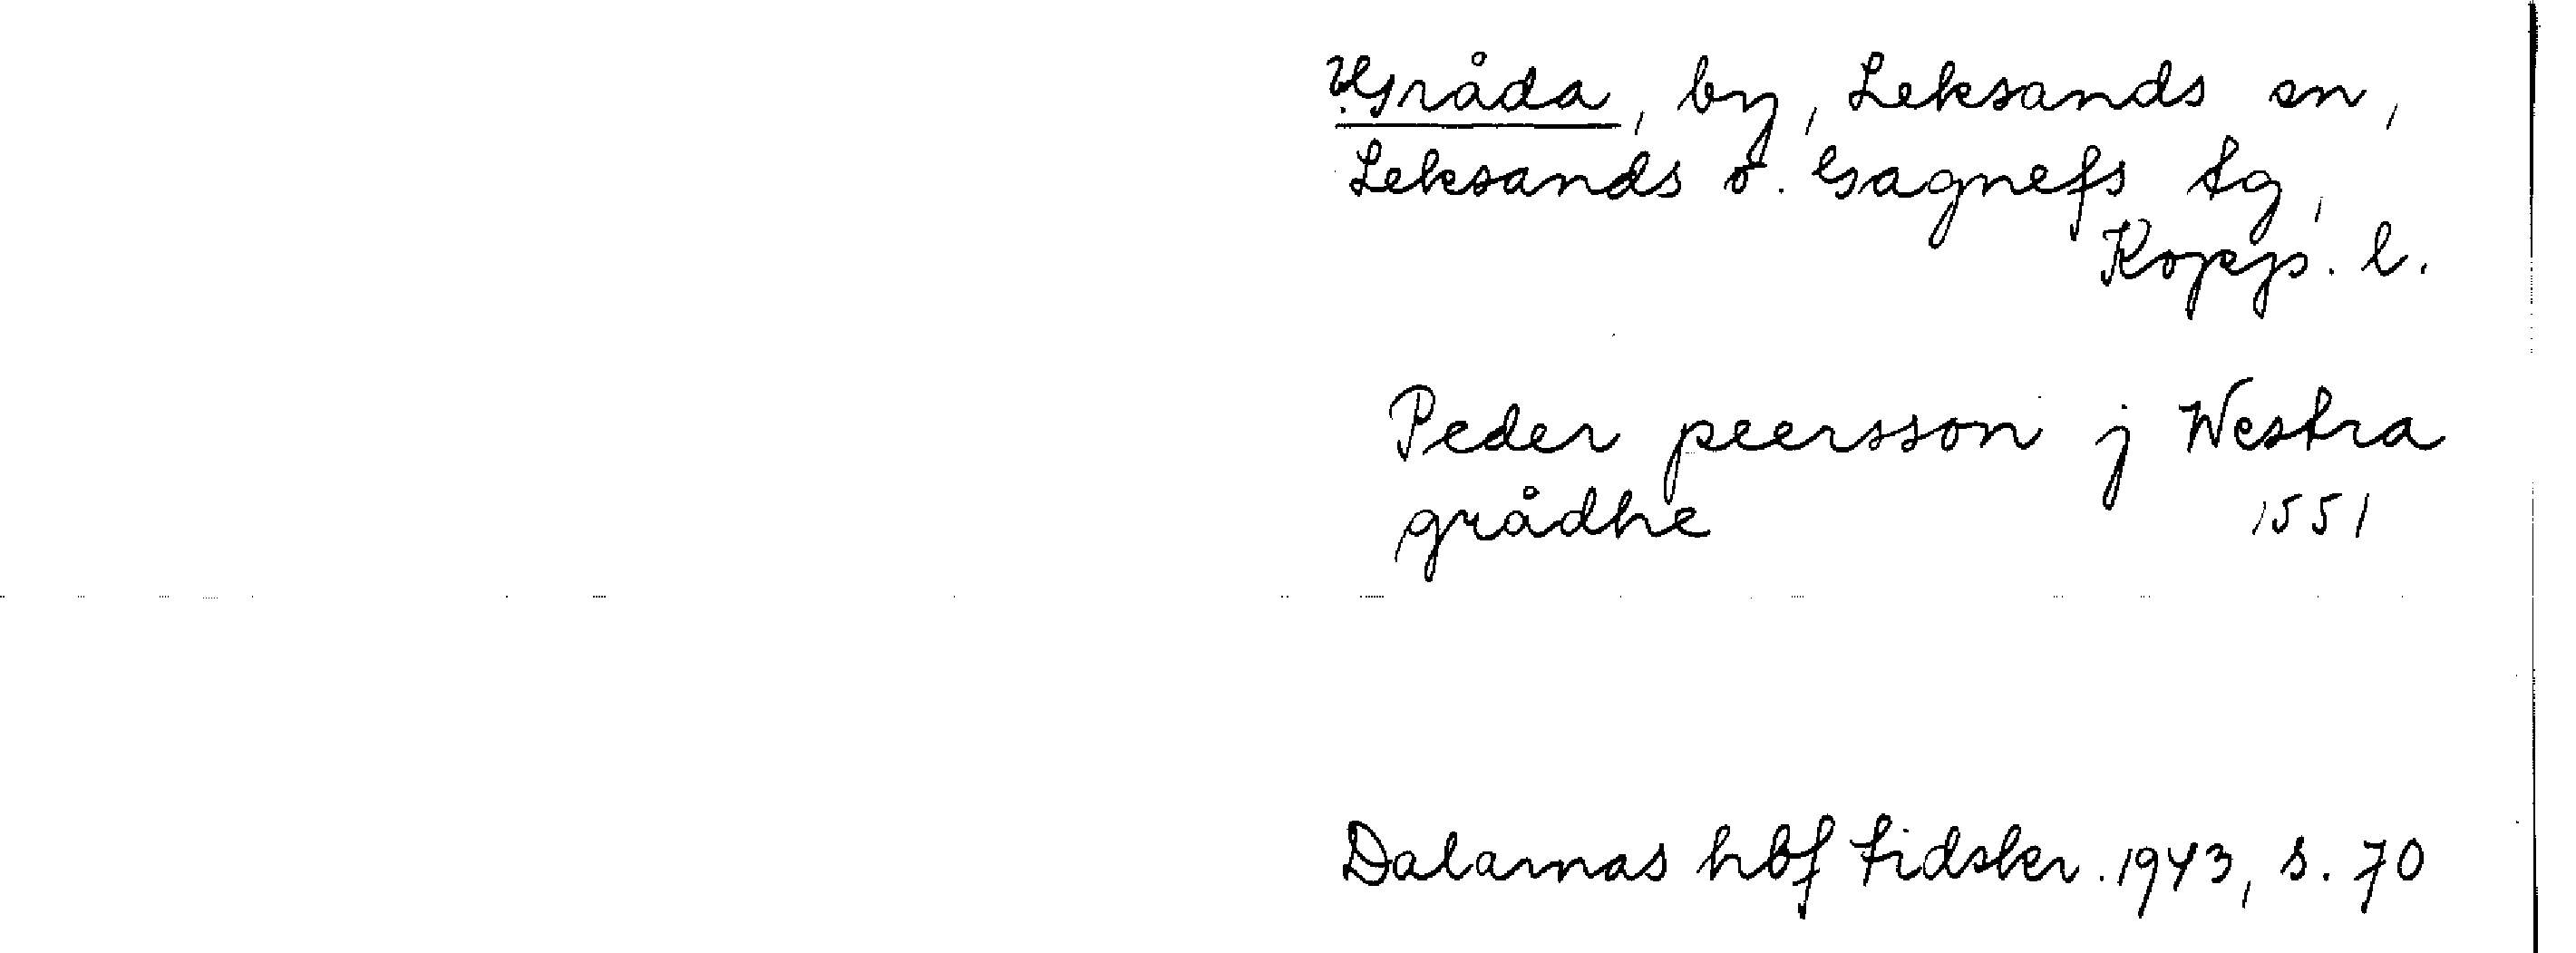 V. Gråda, by, Leksands sn,
Leksands o. Gagnefs tg,
Kopp. l.
Peder peersson j Westra
grådhe 1551
Dalarnas hbf tidskr. 1943, s. 70